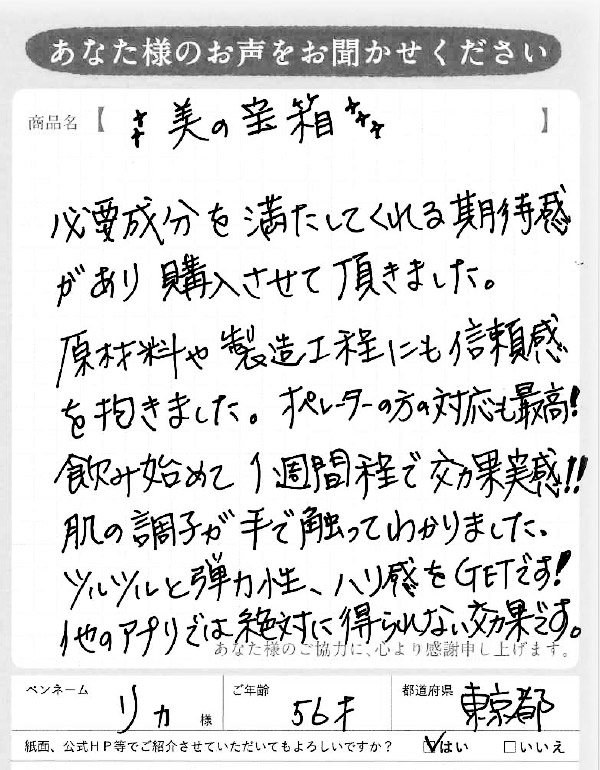 あなた様のお声をお聞かせください
商品名【 美の宝箱 】
必要成分を満たしてくれる期待感
があり購入させて頂きました。
原材料や製造工程にも信頼感
を抱きました。オペレーターの方の対応も最高!
飲み始めて1週間程で効果実感!!
肌の調子が手で触ってわかりました。
ツルツルと弾力性、ハリ感をGETです!
他のアプリでは絶対に得られない効果です。
あなた様のご協力に、心より感謝申し上げます。
ペンネーム リカ 様 ご年齢 56才 都道府県 東京都
紙面、公式HP等でご紹介させていただいてもよろしいですか? ☑はい □いいえ